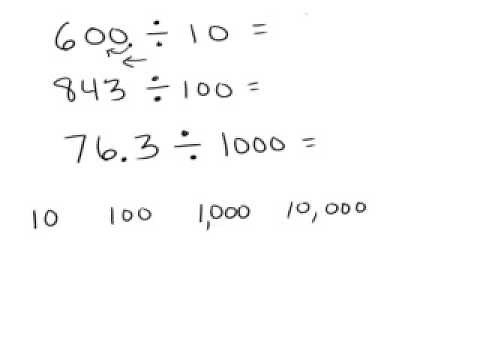 600. ÷ 10 =
843 ÷ 100 =
76.3 ÷ 1000 =
10 100 1,000 10,000